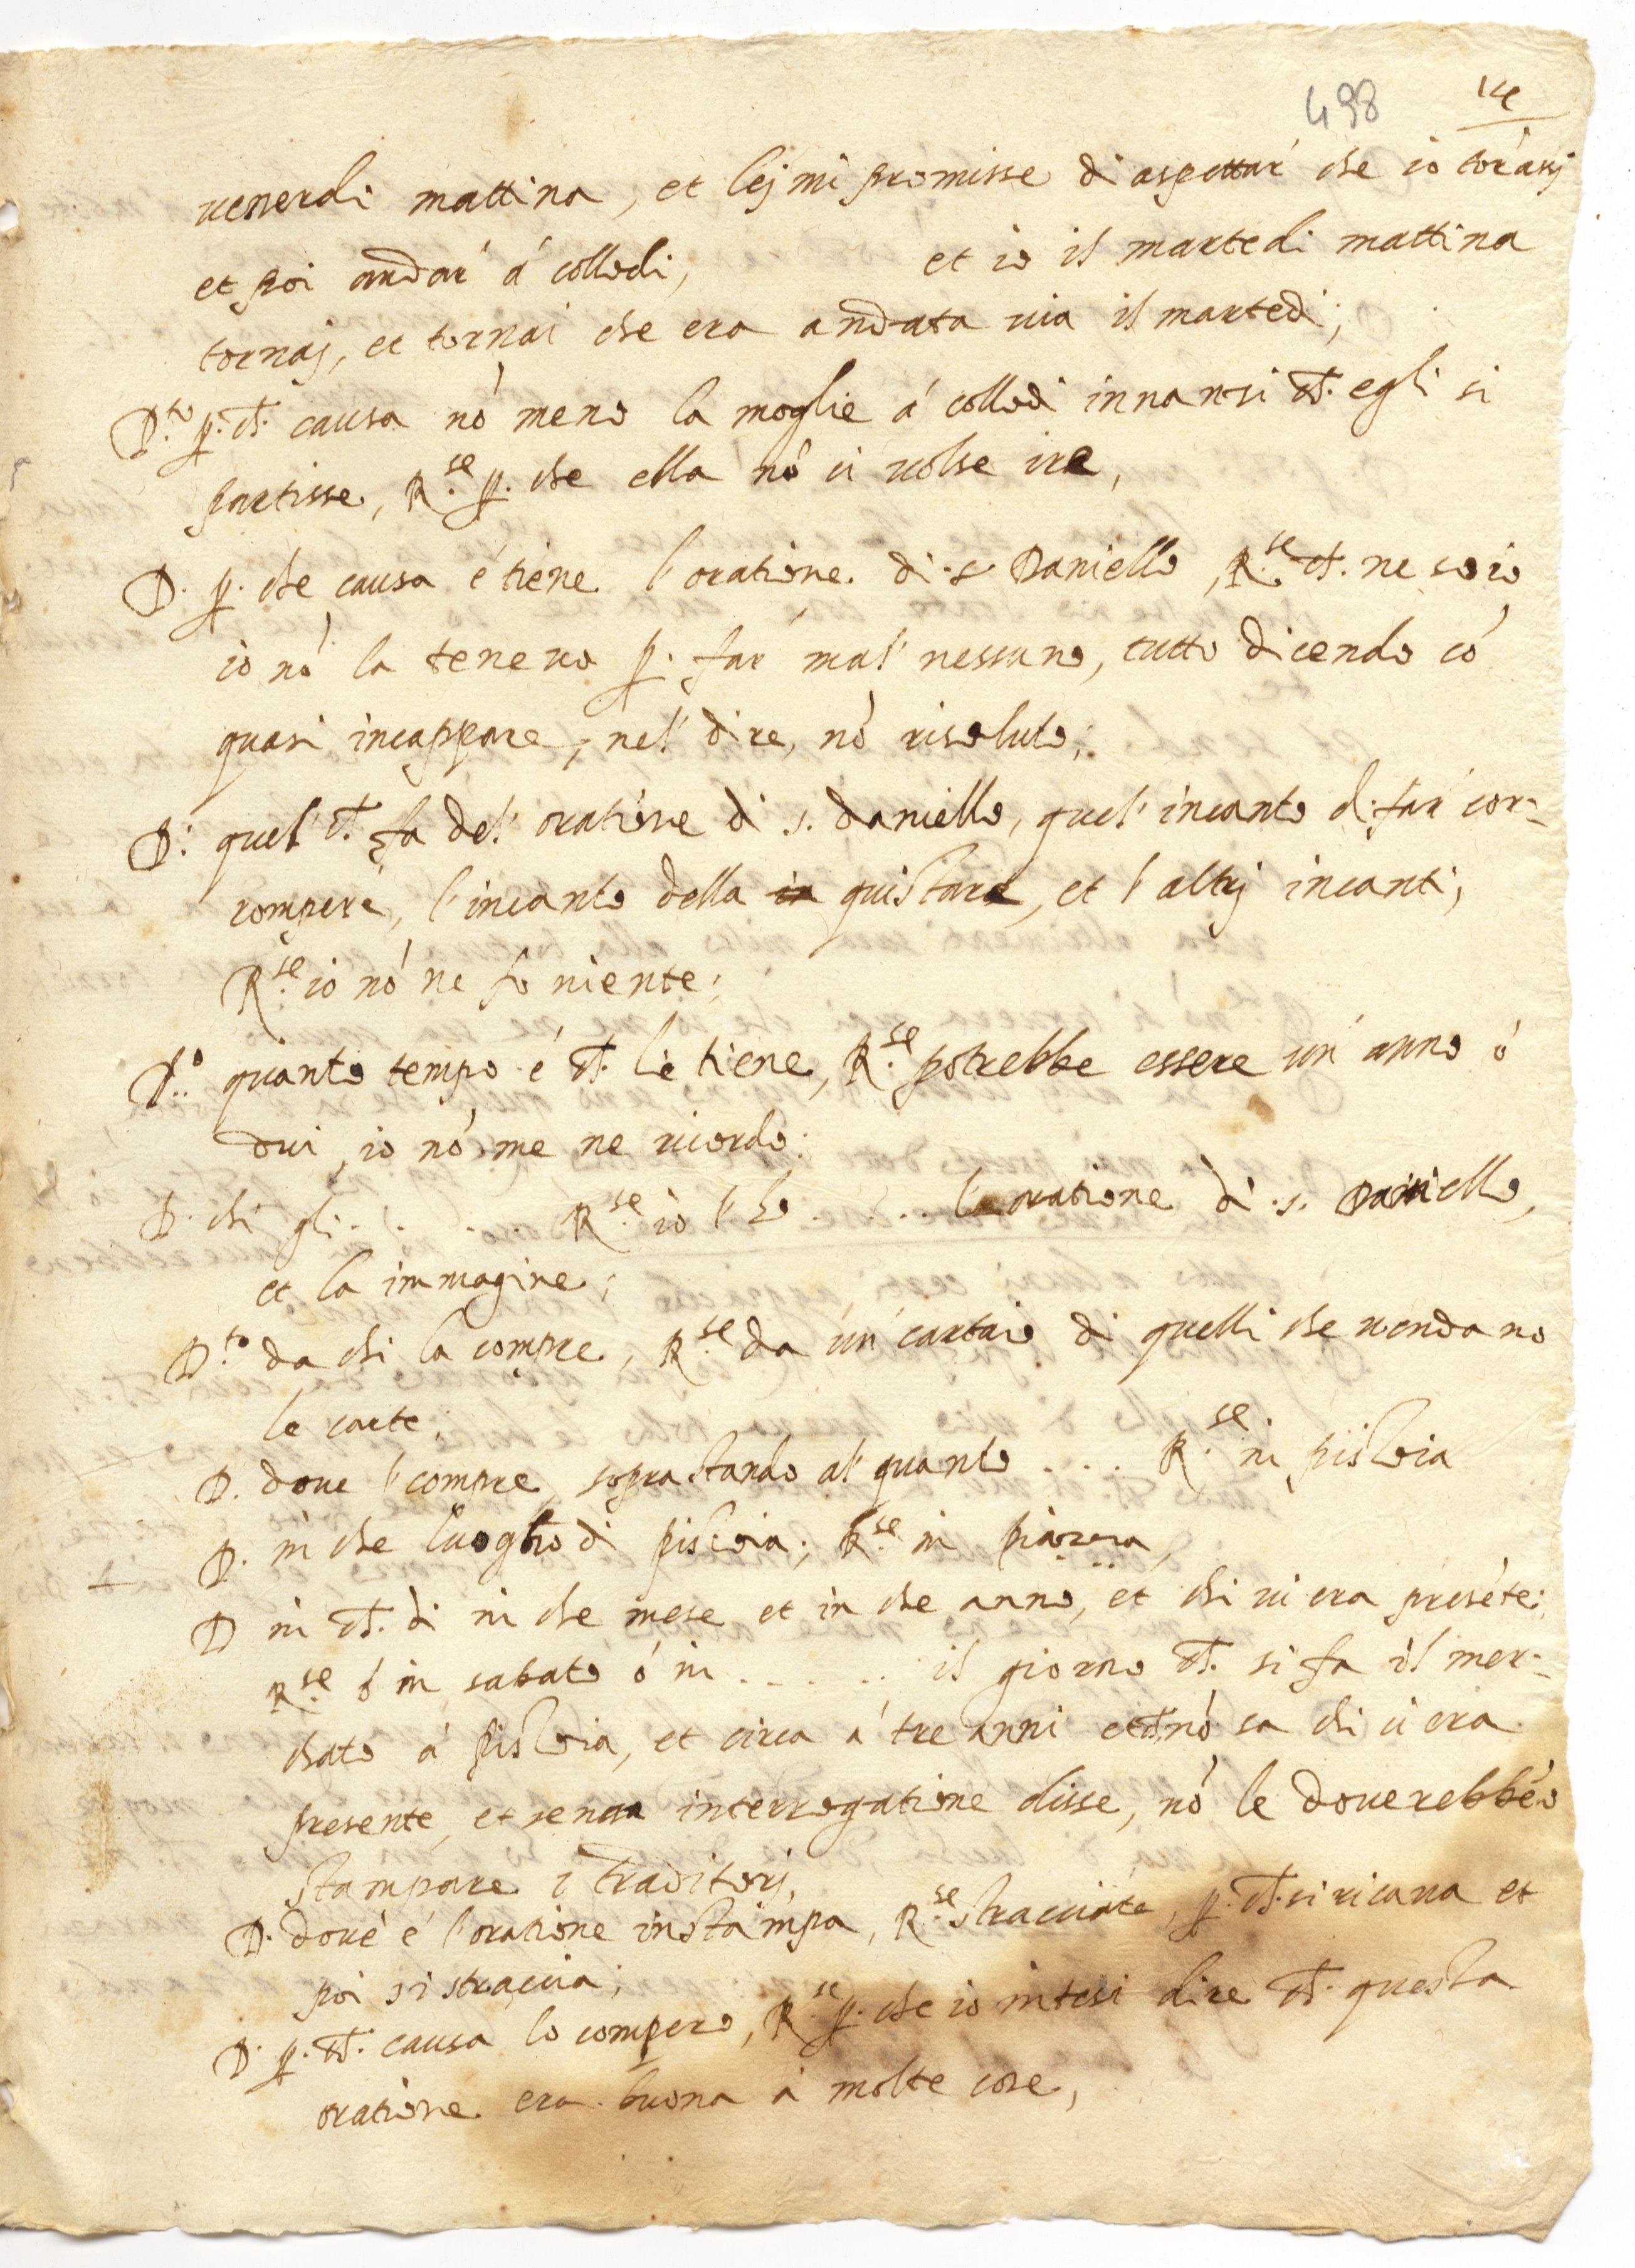 498 14
venerdi mattina, et lej mi promisse di aspettar' che io tornasj
et poi andar' á collodi, et io il martedi mattina
tornaj, et tornai che era andata via il martedi;
D.to p. ch. causa nó meno la moglie á collodi innansi ch. egli si
partisse, R.se p. che ella nó ci volse ire,
D. p. che causa é tiene l'oratione di s. Daniello, R.se ch. ne so io
io nó la tenevo p. far' mal' nessuno, tutto dicendo có
quasi incappare, nel' dire, nó risoluto;
D: quel' ch. fa del' oratione di s. daniello, quel' incanto di far' cor=
rompere, l'incanto della in guistara, et l'altrj incanti,
R.se io nó ne fo niente;
D.o quanto tempo é ch. le tiene, R.se potrebbe essere un' anno ó
dui, io nó me ne ricordo:
D. chi gli . . . . R.se io l'ho . . . . l'oratione di .s. Daniello,
et la immagine;
D.to da chi la compre, R.se da un' cartaio di quelli che vendano
le carte;
D. dove l'compre, soprastando al' quanto . . . R.se in pistoia
D. in che luogho di pistoia; R.se in piazza,
D in ch. di in che mese et in che anno, et chi vi era preséte;
R.se ó in sabato ó in . . . . . il giorno ch. si fa il mer=
chato á pistoia, et circa á tre anni et nó sa chi ci era
presente, et senza interrogatione disse, nó le doverebbéo
stampare i traditorj,
D. dové é l'oratione in stampa, R.se stracciate, p. ch. si ricava et
poi si straccia;
D. p. ch. causa lo compero, R.se p. che io intesi dire ch. questa
oratione era buona á molte cose,